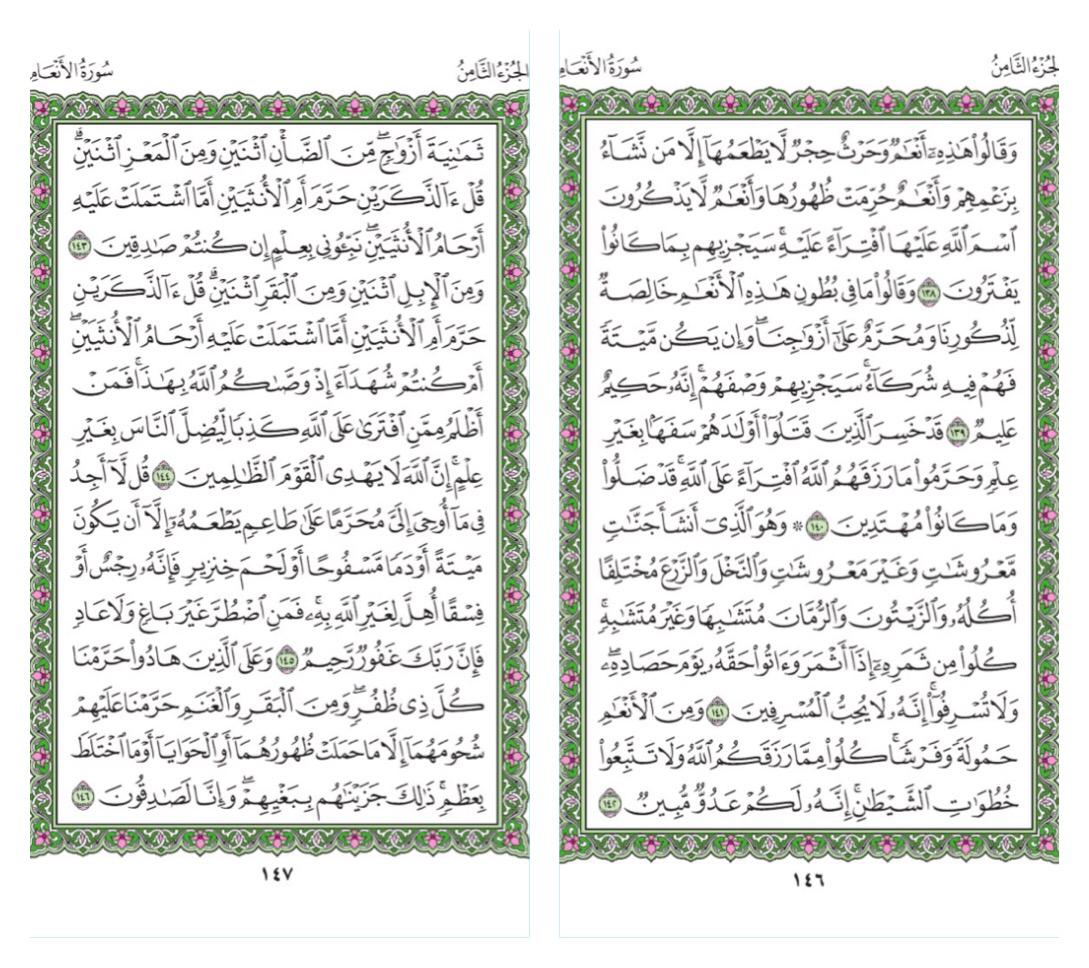 الجُزْءُ الثَّامِنُ
سُورَةُ الأَنْعَامِ
وَقَالُواْ هَٰذِهِۦٓ أَنْعَٰمٌ وَحَرْثٌ حِجْرٌ لَّا يَطْعَمُهَآ إِلَّا مَن نَّشَآءُ
بِزَعْمِهِمْ وَأَنْعَٰمٌ حُرِّمَتْ ظُهُورُهَا وَأَنْعَٰمٌ لَّا يَذْكُرُونَ
ٱسْمَ ٱللَّهِ عَلَيْهَا ٱفْتِرَآءً عَلَيْهِۚ سَيَجْزِيهِم بِمَا كَانُواْ
يَفْتَرُونَ ١٣٨ وَقَالُواْ مَا فِي بُطُونِ هَٰذِهِ ٱلْأَنْعَٰمِ خَالِصَةٌ
لِّذُكُورِنَا وَمُحَرَّمٌ عَلَىٰٓ أَزْوَٰجِنَاۖ وَإِن يَكُن مَّيْتَةً
فَهُمْ فِيهِ شُرَكَآءُۚ سَيَجْزِيهِمْ وَصْفَهُمْۚ إِنَّهُۥ حَكِيمٌ
عَلِيمٌ ١٣٩ قَدْ خَسِرَ ٱلَّذِينَ قَتَلُوٓاْ أَوْلَٰدَهُمْ سَفَهًۢا بِغَيْرِ
عِلْمٍ وَحَرَّمُواْ مَا رَزَقَهُمُ ٱللَّهُ ٱفْتِرَآءً عَلَى ٱللَّهِۚ قَدْ ضَلُّواْ
وَمَا كَانُواْ مُهْتَدِينَ ١٤٠ ۞ وَهُوَ ٱلَّذِيٓ أَنشَأَ جَنَّٰتٍ
مَّعْرُوشَٰتٍ وَغَيْرَ مَعْرُوشَٰتٍ وَٱلنَّخْلَ وَٱلزَّرْعَ مُخْتَلِفًا
أُكُلُهُۥ وَٱلزَّيْتُونَ وَٱلرُّمَّانَ مُتَشَٰبِهًا وَغَيْرَ مُتَشَٰبِهٍۚ
كُلُواْ مِن ثَمَرِهِۦٓ إِذَآ أَثْمَرَ وَءَاتُواْ حَقَّهُۥ يَوْمَ حَصَادِهِۦۖ
وَلَا تُسْرِفُوٓاْۚ إِنَّهُۥ لَا يُحِبُّ ٱلْمُسْرِفِينَ ١٤١ وَمِنَ ٱلْأَنْعَٰمِ
حَمُولَةً وَفَرْشًاۚ كُلُواْ مِمَّا رَزَقَكُمُ ٱللَّهُ وَلَا تَتَّبِعُواْ
خُطُوَٰتِ ٱلشَّيْطَٰنِۚ إِنَّهُۥ لَكُمْ عَدُوٌّ مُّبِينٌ ١٤٢
١٤٦
الجُزْءُ الثَّامِنُ
سُورَةُ الأَنْعَامِ
ثَمَٰنِيَةَ أَزْوَٰجٍۖ مِّنَ ٱلضَّأْنِ ٱثْنَيْنِ وَمِنَ ٱلْمَعْزِ ٱثْنَيْنِۗ
قُلْ ءَآلذَّكَرَيْنِ حَرَّمَ أَمِ ٱلْأُنثَيَيْنِ أَمَّا ٱشْتَمَلَتْ عَلَيْهِ
أَرْحَامُ ٱلْأُنثَيَيْنِۖ نَبِّـُٔونِي بِعِلْمٍ إِن كُنتُمْ صَٰدِقِينَ ١٤٣
وَمِنَ ٱلْإِبِلِ ٱثْنَيْنِ وَمِنَ ٱلْبَقَرِ ٱثْنَيْنِۗ قُلْ ءَآلذَّكَرَيْنِ
حَرَّمَ أَمِ ٱلْأُنثَيَيْنِ أَمَّا ٱشْتَمَلَتْ عَلَيْهِ أَرْحَامُ ٱلْأُنثَيَيْنِۖ
أَمْ كُنتُمْ شُهَدَآءَ إِذْ وَصَّىٰكُمُ ٱللَّهُ بِهَٰذَاۚ فَمَنْ
أَظْلَمُ مِمَّنِ ٱفْتَرَىٰ عَلَى ٱللَّهِ كَذِبًا لِّيُضِلَّ ٱلنَّاسَ بِغَيْرِ
عِلْمٍۚ إِنَّ ٱللَّهَ لَا يَهْدِي ٱلْقَوْمَ ٱلظَّٰلِمِينَ ١٤٤ قُل لَّآ أَجِدُ
فِي مَآ أُوحِيَ إِلَيَّ مُحَرَّمًا عَلَىٰ طَاعِمٍ يَطْعَمُهُۥٓ إِلَّآ أَن يَكُونَ
مَيْتَةً أَوْ دَمًا مَّسْفُوحًا أَوْ لَحْمَ خِنزِيرٍ فَإِنَّهُۥ رِجْسٌ أَوْ
فِسْقًا أُهِلَّ لِغَيْرِ ٱللَّهِ بِهِۦۚ فَمَنِ ٱضْطُرَّ غَيْرَ بَاغٍ وَلَا عَادٍ
فَإِنَّ رَبَّكَ غَفُورٌ رَّحِيمٌ ١٤٥ وَعَلَى ٱلَّذِينَ هَادُواْ حَرَّمْنَا
كُلَّ ذِي ظُفُرٍۖ وَمِنَ ٱلْبَقَرِ وَٱلْغَنَمِ حَرَّمْنَا عَلَيْهِمْ
شُحُومَهُمَآ إِلَّا مَا حَمَلَتْ ظُهُورُهُمَآ أَوِ ٱلْحَوَايَآ أَوْ مَا ٱخْتَلَطَ
بِعَظْمٍۚ ذَٰلِكَ جَزَيْنَٰهُم بِبَغْيِهِمْۖ وَإِنَّا لَصَٰدِقُونَ ١٤٦
١٤٧